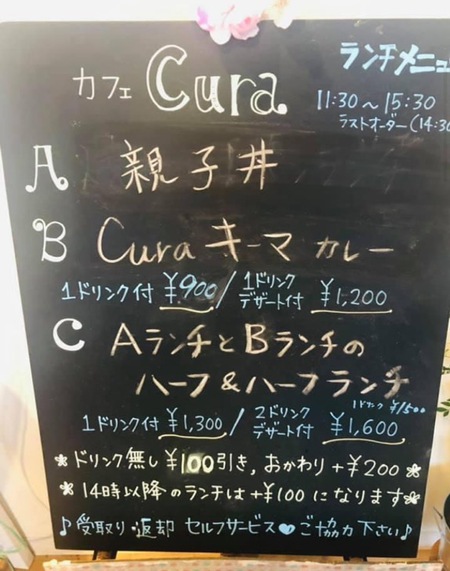 ランチメニュ
カフェ Cura
11:30～15:30
ラストオーダー(14:30
A 親子丼
B Cura キーマ カレー
1ドリンク付 ¥900 / 1ドリンク デザート付 ¥1,200
C AランチとBランチの
ハーフ&ハーフランチ
1ドリンク ¥1500
1ドリンク付 ¥1,300 / 2ドリンク デザート付 ¥1,600
❀ドリンク無し¥100引き,おかわり+¥200❀
❀14時以降のランチは+¥100になります❀
♪受取り・返却 セルフサービス♥ご協力下さい♪